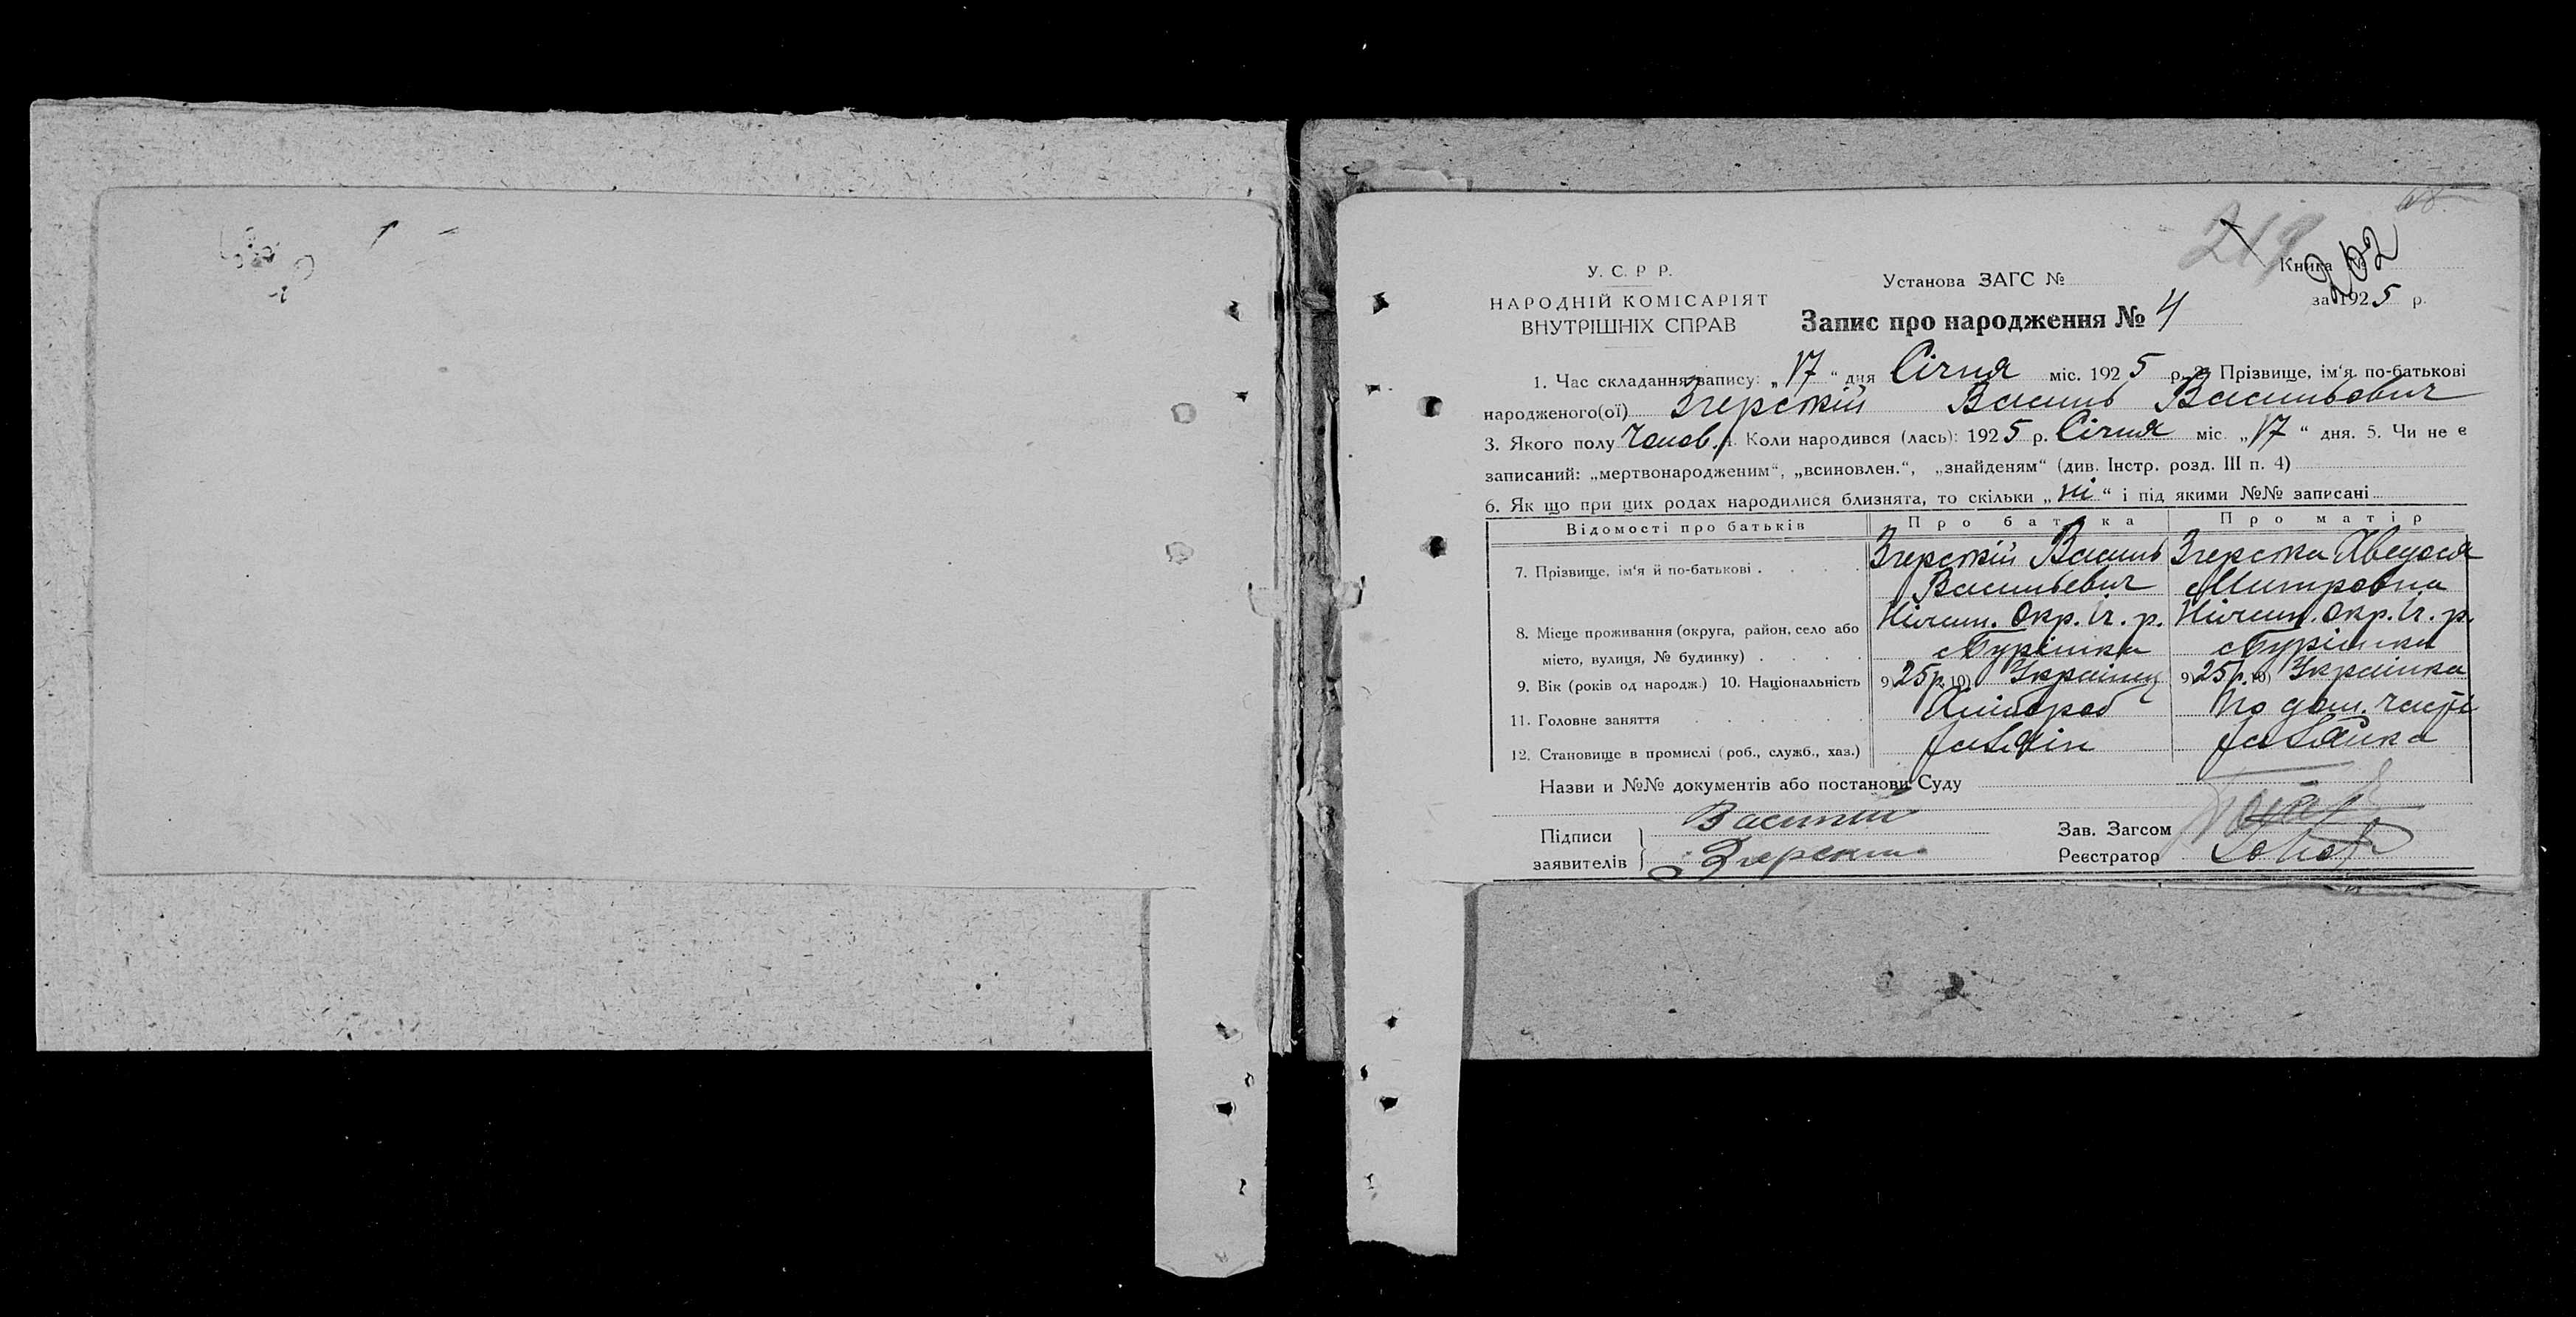 219
202
У. С. Р Р.
НАРОДНІЙ КОМІСАРІЯТ
ВНУТРІШНІХ СПРАВ
Установа ЗАГС №
Книга №
за 1925 р.
Запис про народження № 4
1. Час складання запису: „17“ дня Січня міс. 1925 р. 2. Прізвище, ім‘я. по-батькові
народженого(ої) Згерскій Василь Васильович
3. Якого полу Чолов. 4. Коли народився (лась): 1925 р. Січня міс. „17“ дня. 5. Чи не є
записаний: „мертвонародженим“, „всиновлен.“, „знайденям“ (див. Інстр. розд. III п. 4)
6. Як що при цих родах народилися близнята, то скільки „ні“ і під якими №№ записані
Відомості про батьків Про батька Про матір
7. Прізвище, ім‘я й по-батькові . . . . Згерскій Василь Згерска Хведося
Васильевич Митровна
Ніжин. Окр. Іч. р. Ніжин. Окр. Іч. р.
8. Місце проживання (округа, район, село або
місто, вулиця, № будинку) . . . . с Бурімка с Бурімка
9. Вік (років од народж.) 10. Національність 9) 25 р. 10) Українец 9) 25 р. 10) Українка
11. Головне заняття . . . . . . Хлібороб По дом. часті
12. Становище в промислі (роб., служб., хаз.) хазяїн хазяйка
Назви и №№ документів або постанови Суду
Підписи Василий
заявителів Згерский
Зав. Загсом
Реєстратор